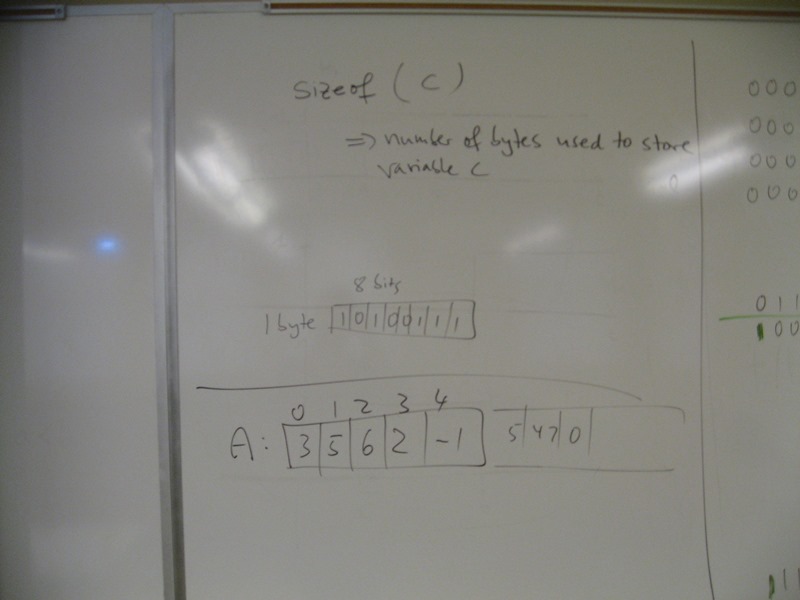 sizeof (c)
=> number of bytes used to store
variable c
8 bits
1 byte 1 0 1 0 0 1 1 1
0 1 2 3 4
A: 3 5 6 2 -1 5 47 0
000
000
000
000
011
100